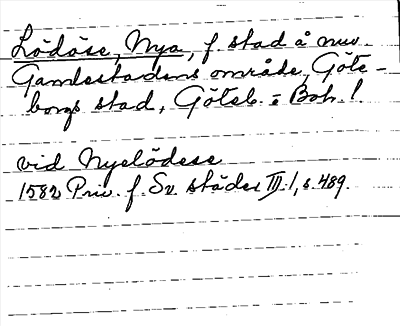 Lödöse, Nya, f. stad å nuv.
Gamlestadens område, Göte-
borgs stad, Göteb. o Boh. l.
vid Nyelödese
1582 Priv. f. Sv. städer III:1, s. 489.